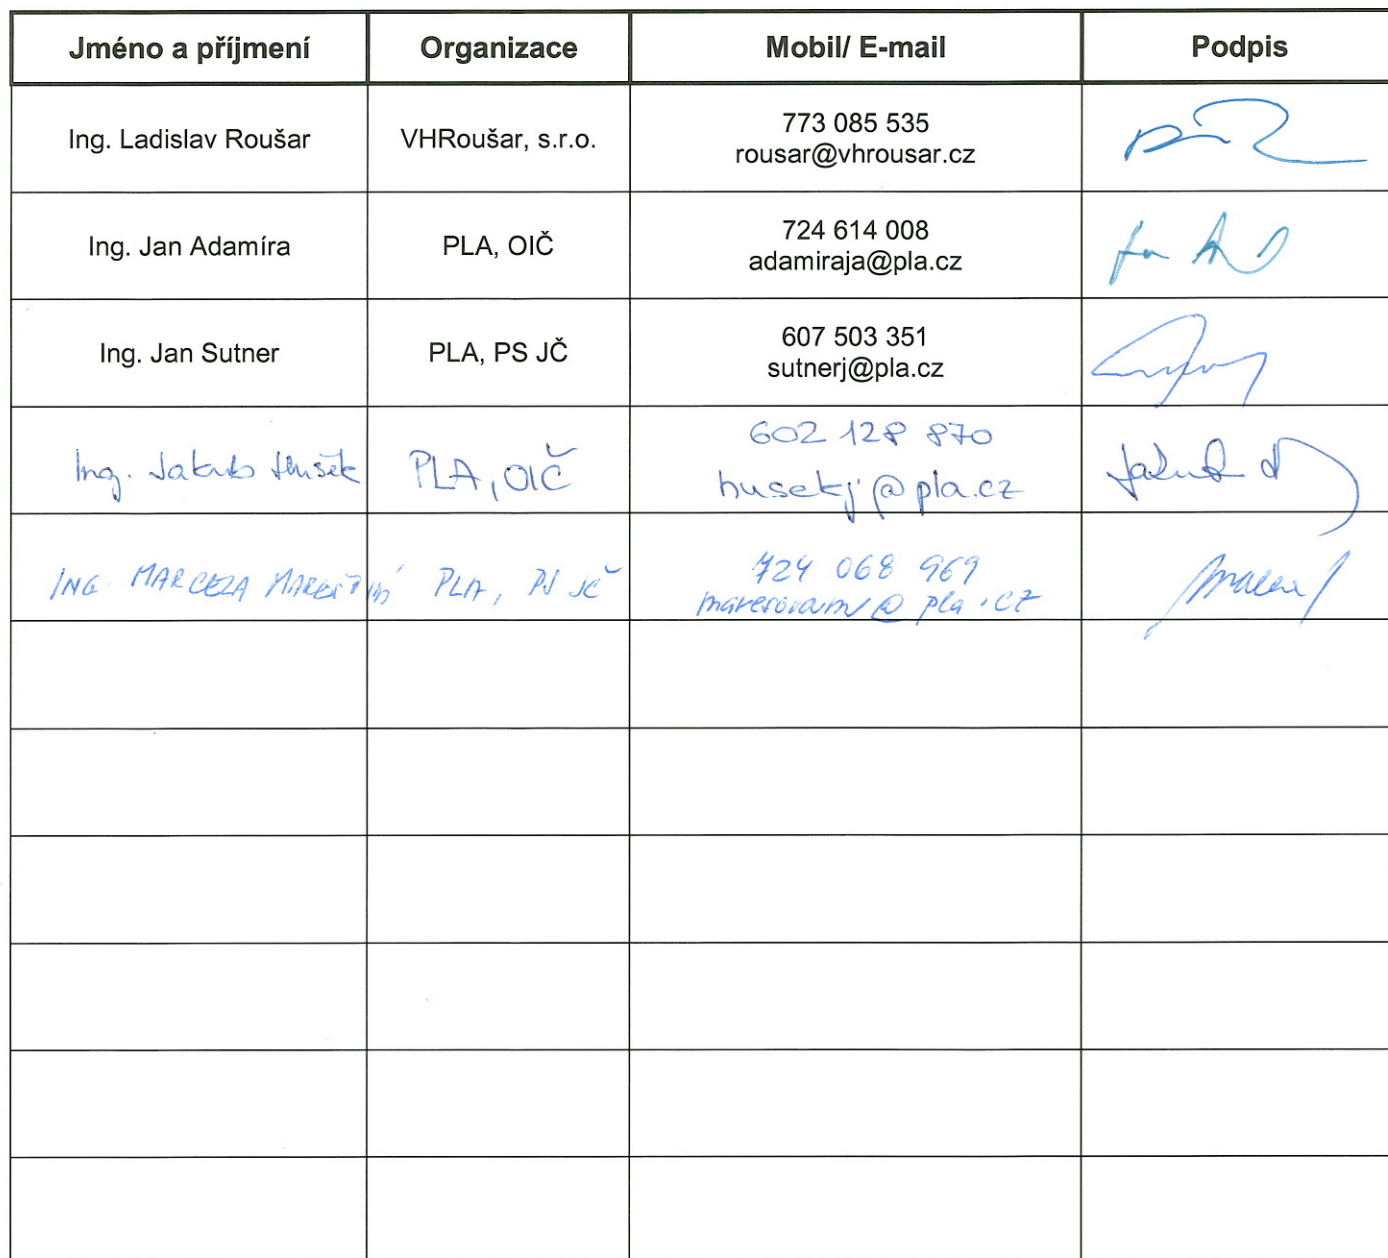 Jméno a příjmení Organizace Mobil/ E-mail Podpis
Ing. Ladislav Roušar VHRoušar, s.r.o. 773 085 535
rousar@vhrousar.cz
Ing. Jan Adamíra PLA, OIČ 724 614 008
adamiraja@pla.cz
Ing. Jan Sutner PLA, PS JČ 607 503 351
sutnerj@pla.cz
Ing. Jakub Hušek PLA, OIČ 602 128 870
husekj@pla.cz
ING. MARCELA PLA, PS JČ 724 068 969
@pla.cz